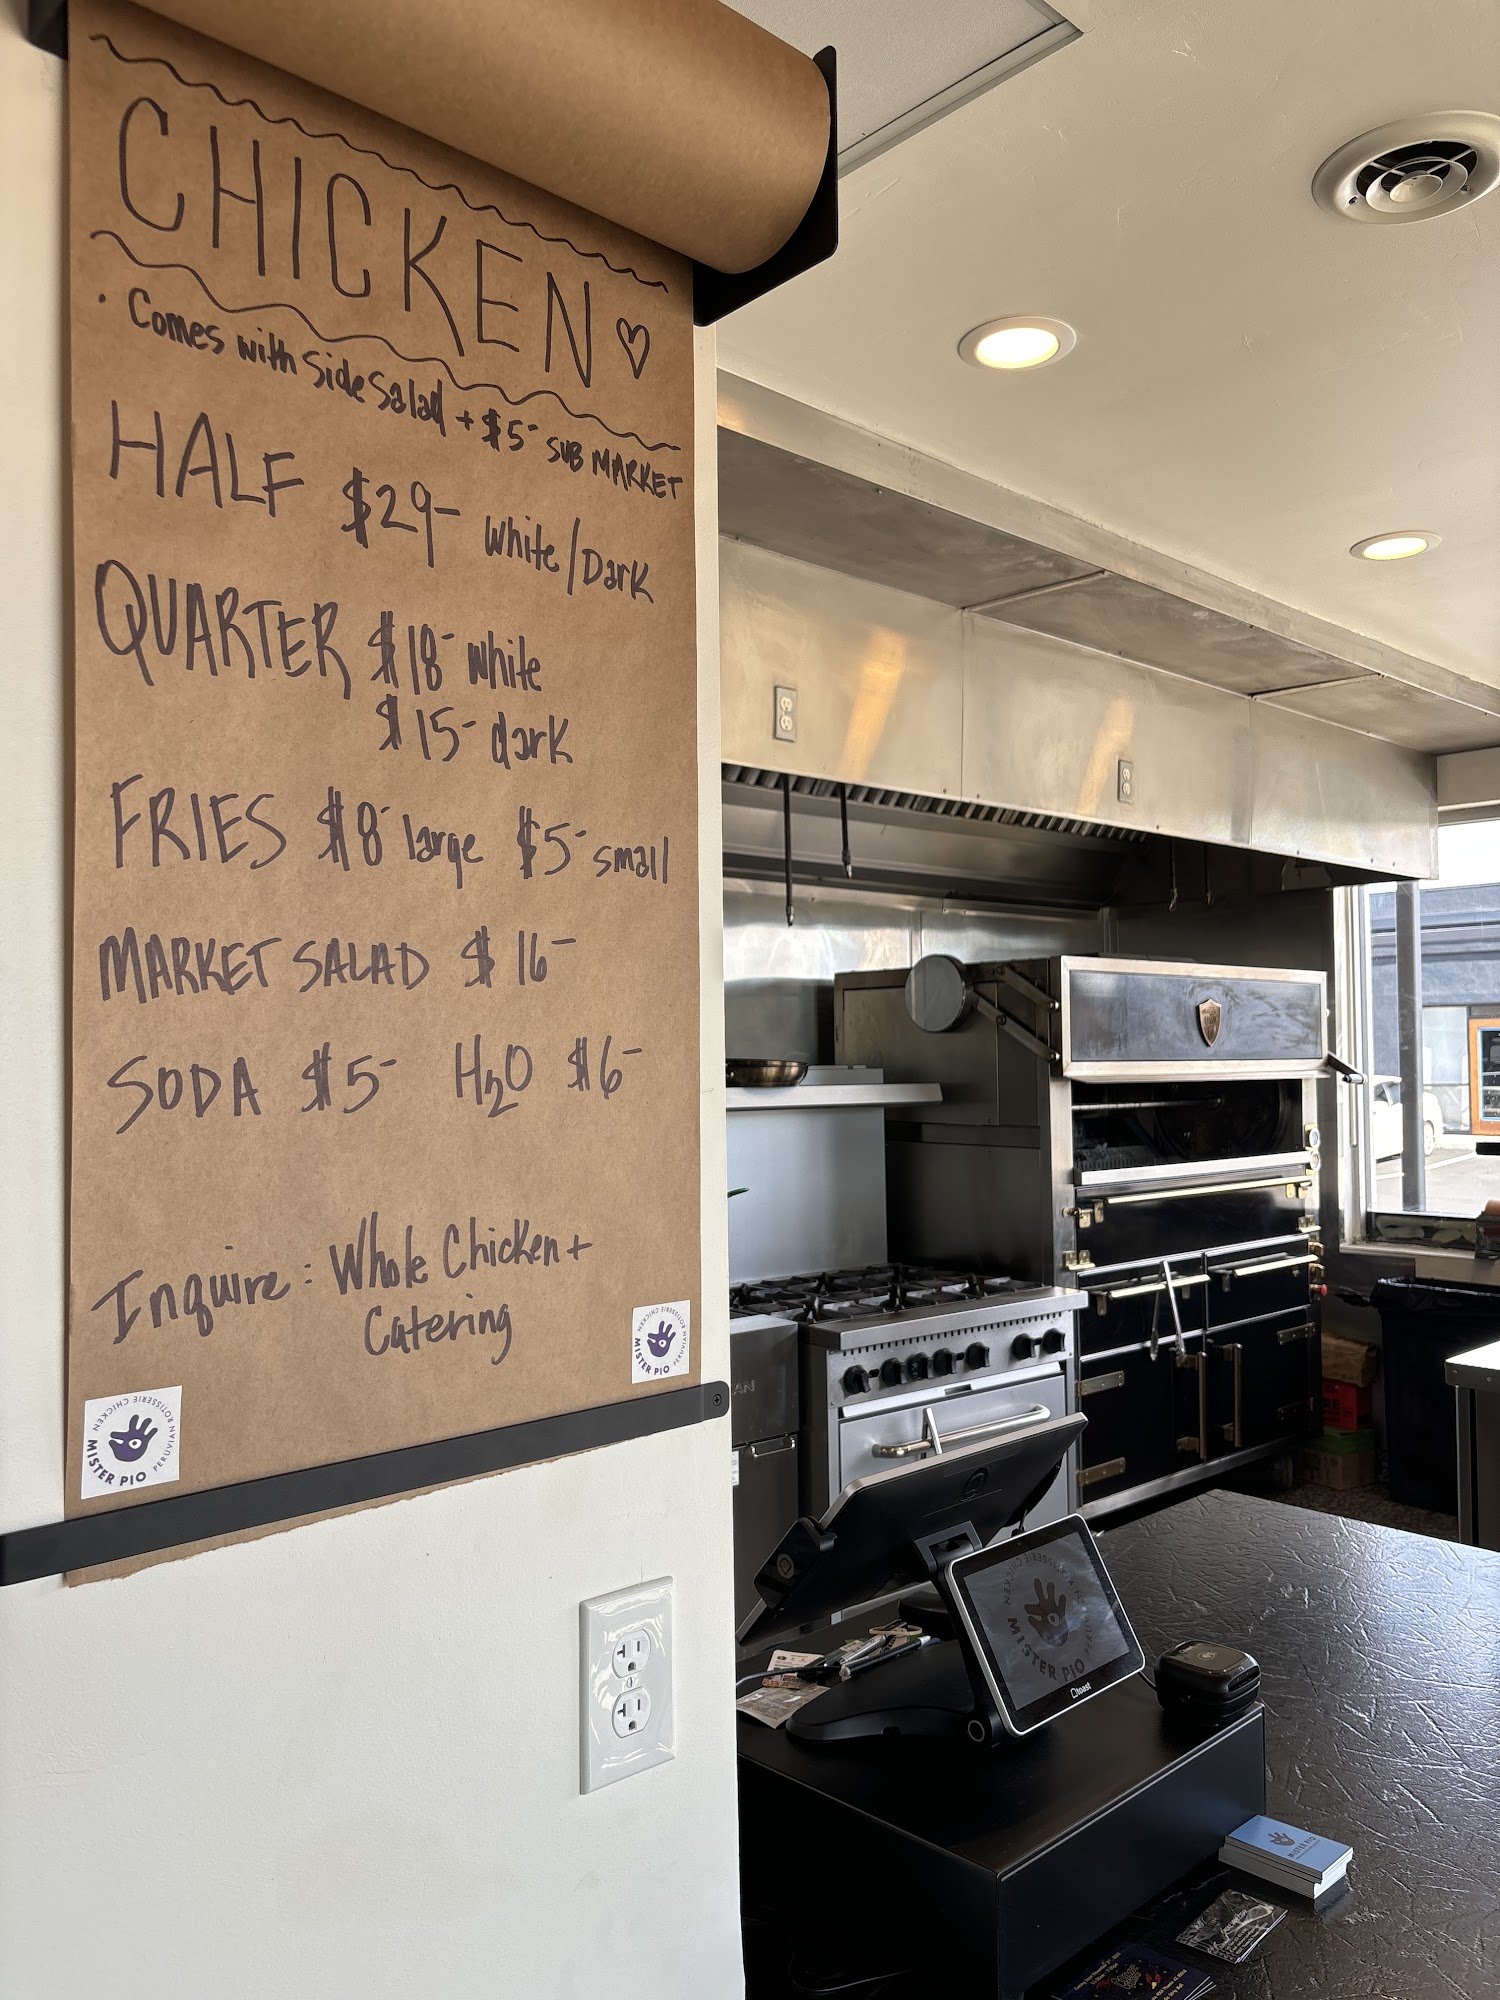 CHICKEN ♡
· Comes with Side Salad + $5- SUB MARKET
HALF $29- white/Dark
QUARTER $18- white
$15- dark
FRIES $8- large $5- small
MARKET SALAD $16-
SODA $5- H2O $6-
Inquire: Whole Chicken +
Catering
MISTER PIO PERUVIAN ROTISSERIE CHICKEN
MISTER PIO PERUVIAN ROTISSERIE CHICKEN
MISTER PIO PERUVIAN ROTISSERIE CHICKEN
toast
MISTER PIO